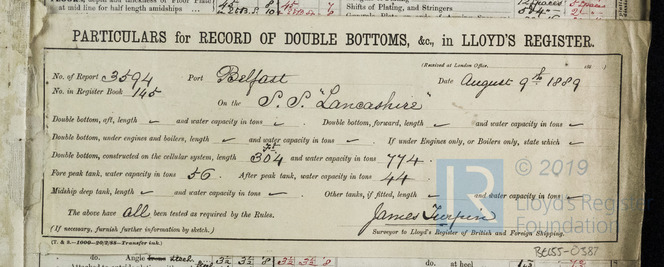 at mid line for half length amidships
Shifts of Plating, and Stringers
PARTICULARS for RECORD OF DOUBLE BOTTOMS, &c., in LLOYD'S REGISTER.
(Received at London Office, 188 )
No. of Report 3594 Port Belfast Date August 9th 1889
No. in Register Book 145
On the S.S. "Lancashire"
Double bottom, aft, length ✓ and water capacity in tons ✓. Double bottom, forward, length ✓ and water capacity in tons ✓
Double bottom, under engines and boilers, length ✓ and water capacity in tons ✓. If under Engines only, or Boilers only, state which ✓
Double bottom, constructed on the cellular system, length 304 ft and water capacity in tons 774.
Fore peak tank, water capacity in tons 56. After peak tank, water capacity in tons 44.
Midship deep tank, length ✓ and water capacity in tons ✓ Other tanks, if fitted, length ✓ and water capacity in tons
The above have all been tested as required by the Rules.
James Turpin
(If necessary, furnish further information by sketch.) Surveyor to Lloyd's Register of British and Foreign Shipping.
(T. & S.—1000—20/2/88—Transfer ink.)
BEL55-0387
do. Angle Steel
do. at heel
LR
© 2019
Lloyd's Register
Foundation